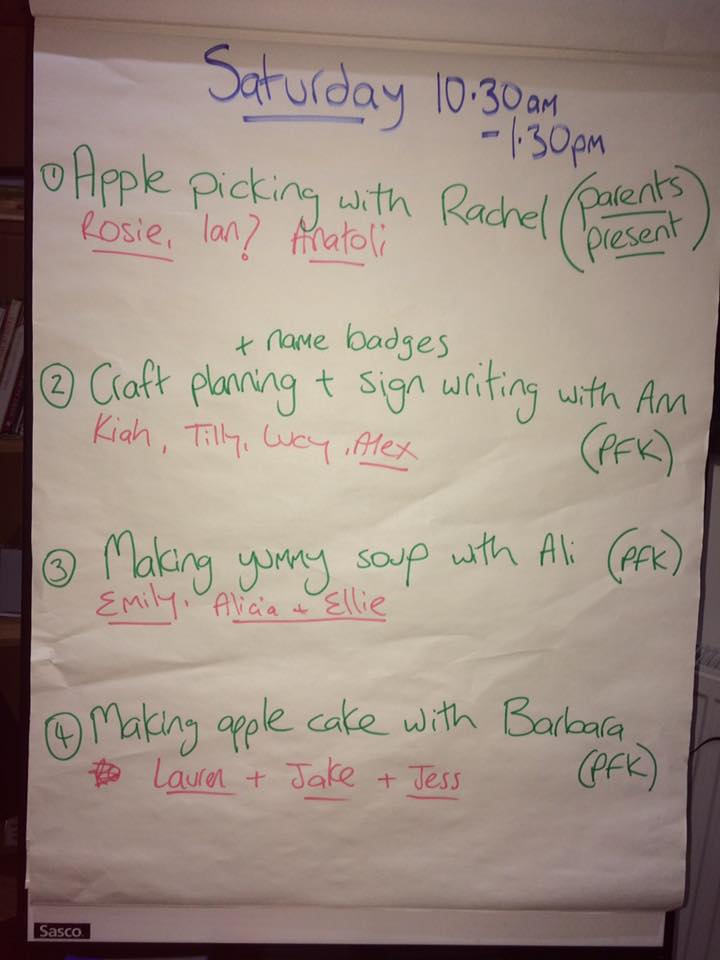 Saturday 10.30am
- 1.30pm
① Apple picking with Rachel (parents present)
Rosie, Ian? Anatoli
+ name badges
② Craft planning + sign writing with Am
Kiah, Tilly, Lucy, Alex (PFK)
③ Making yummy soup with Ali (PFK)
Emily, Alicia + Ellie
④ Making apple cake with Barbara
(PFK)
Lauren + Jake + Jess
Sasco